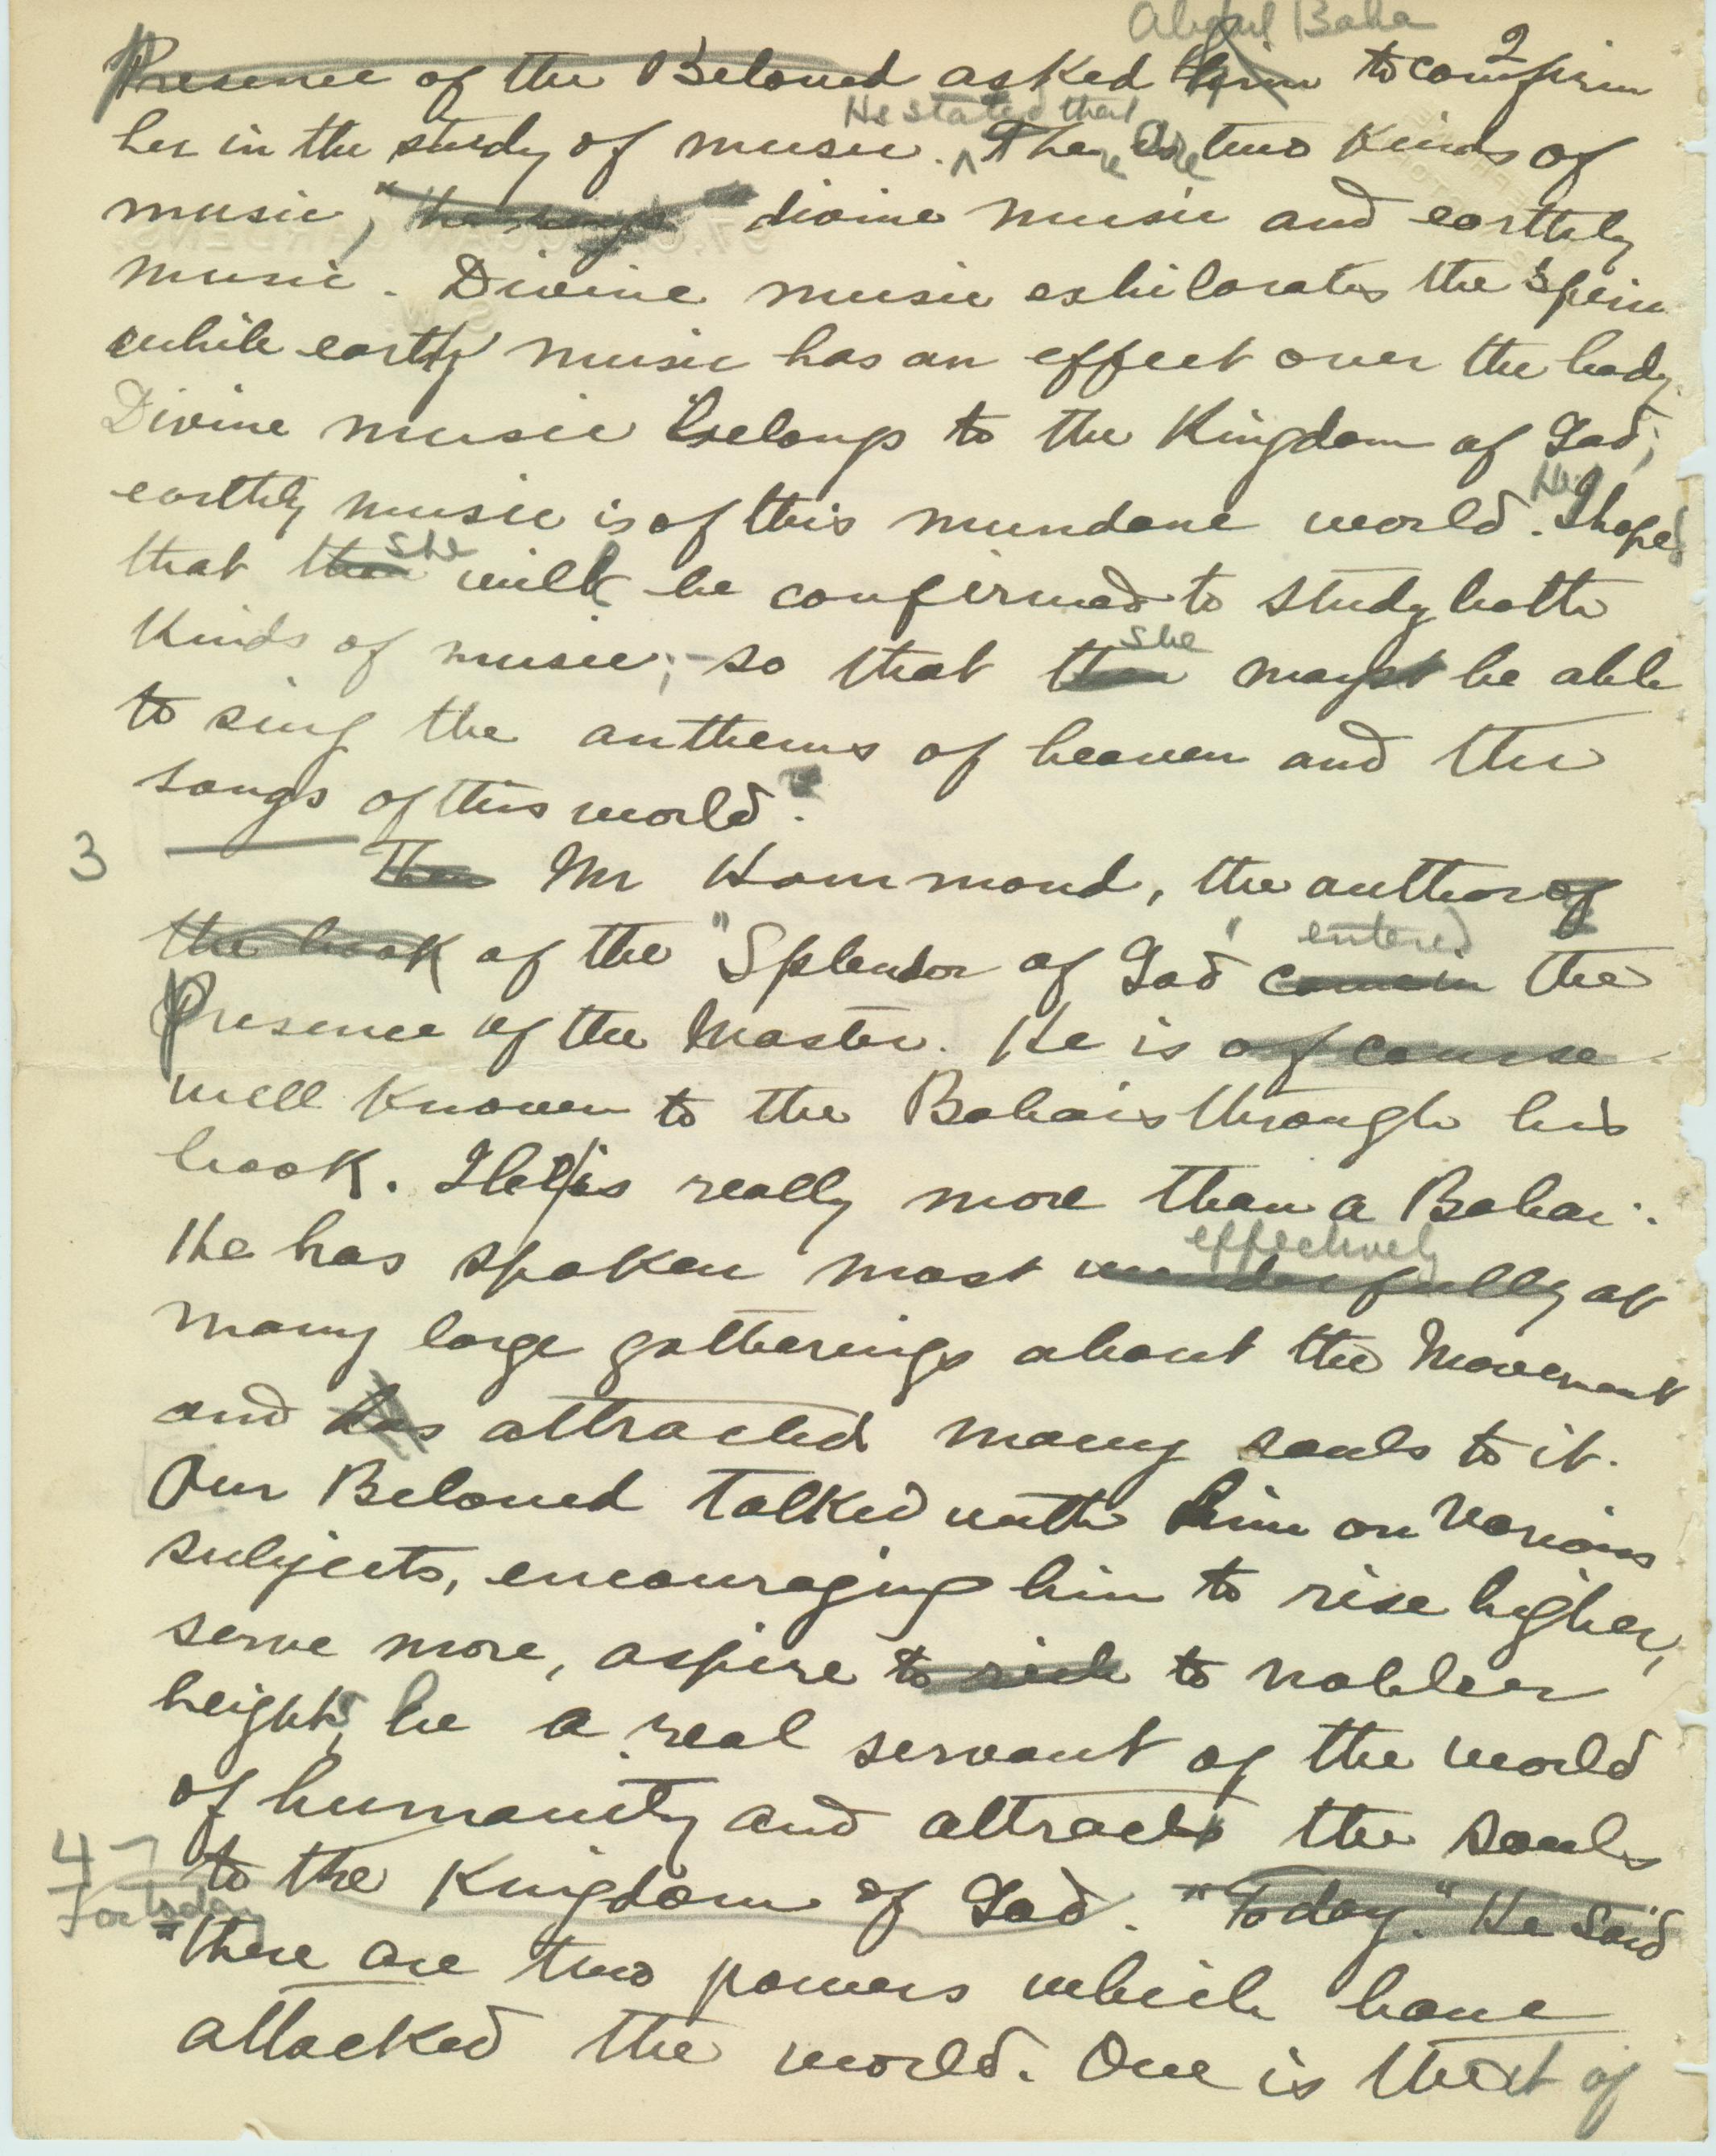 Abdul Baha
2
Presence of the Beloved asked him to confirm
He stated that
her in the study of music. There is are two kinds of
music, "he says" divine music and earthly
music. Divine music exhilarates the spirit
while earthly music has an effect over the body.
Divine music belongs to the Kingdom of God;
He
earthly music is of this mundane world. I hoped
she
that thou wilt be confirmed to study both
she
kinds of music; so that thou mayst be able
to sing the anthems of heaven and the
songs of this world."
3 Then Mr Hammond, the author of
entered
the book of the "Splendor of God" came in the
Presence of the Master. He is of course
well known to the Bahais through his
book. He is really more than a Bahai.
effectively
He has spoken most wonderfully at
many large gatherings about the Movement
and has attracted many souls to it.
Our Beloved talked with him on various
subjects, encouraging him to rise higher,
serve more, aspire to to nobler
heights, be a real servant of the world
of humanity and attract the souls
4 to the Kingdom of God. "Today." He said
For today
"there are two powers which have
attacked the world. One is that of